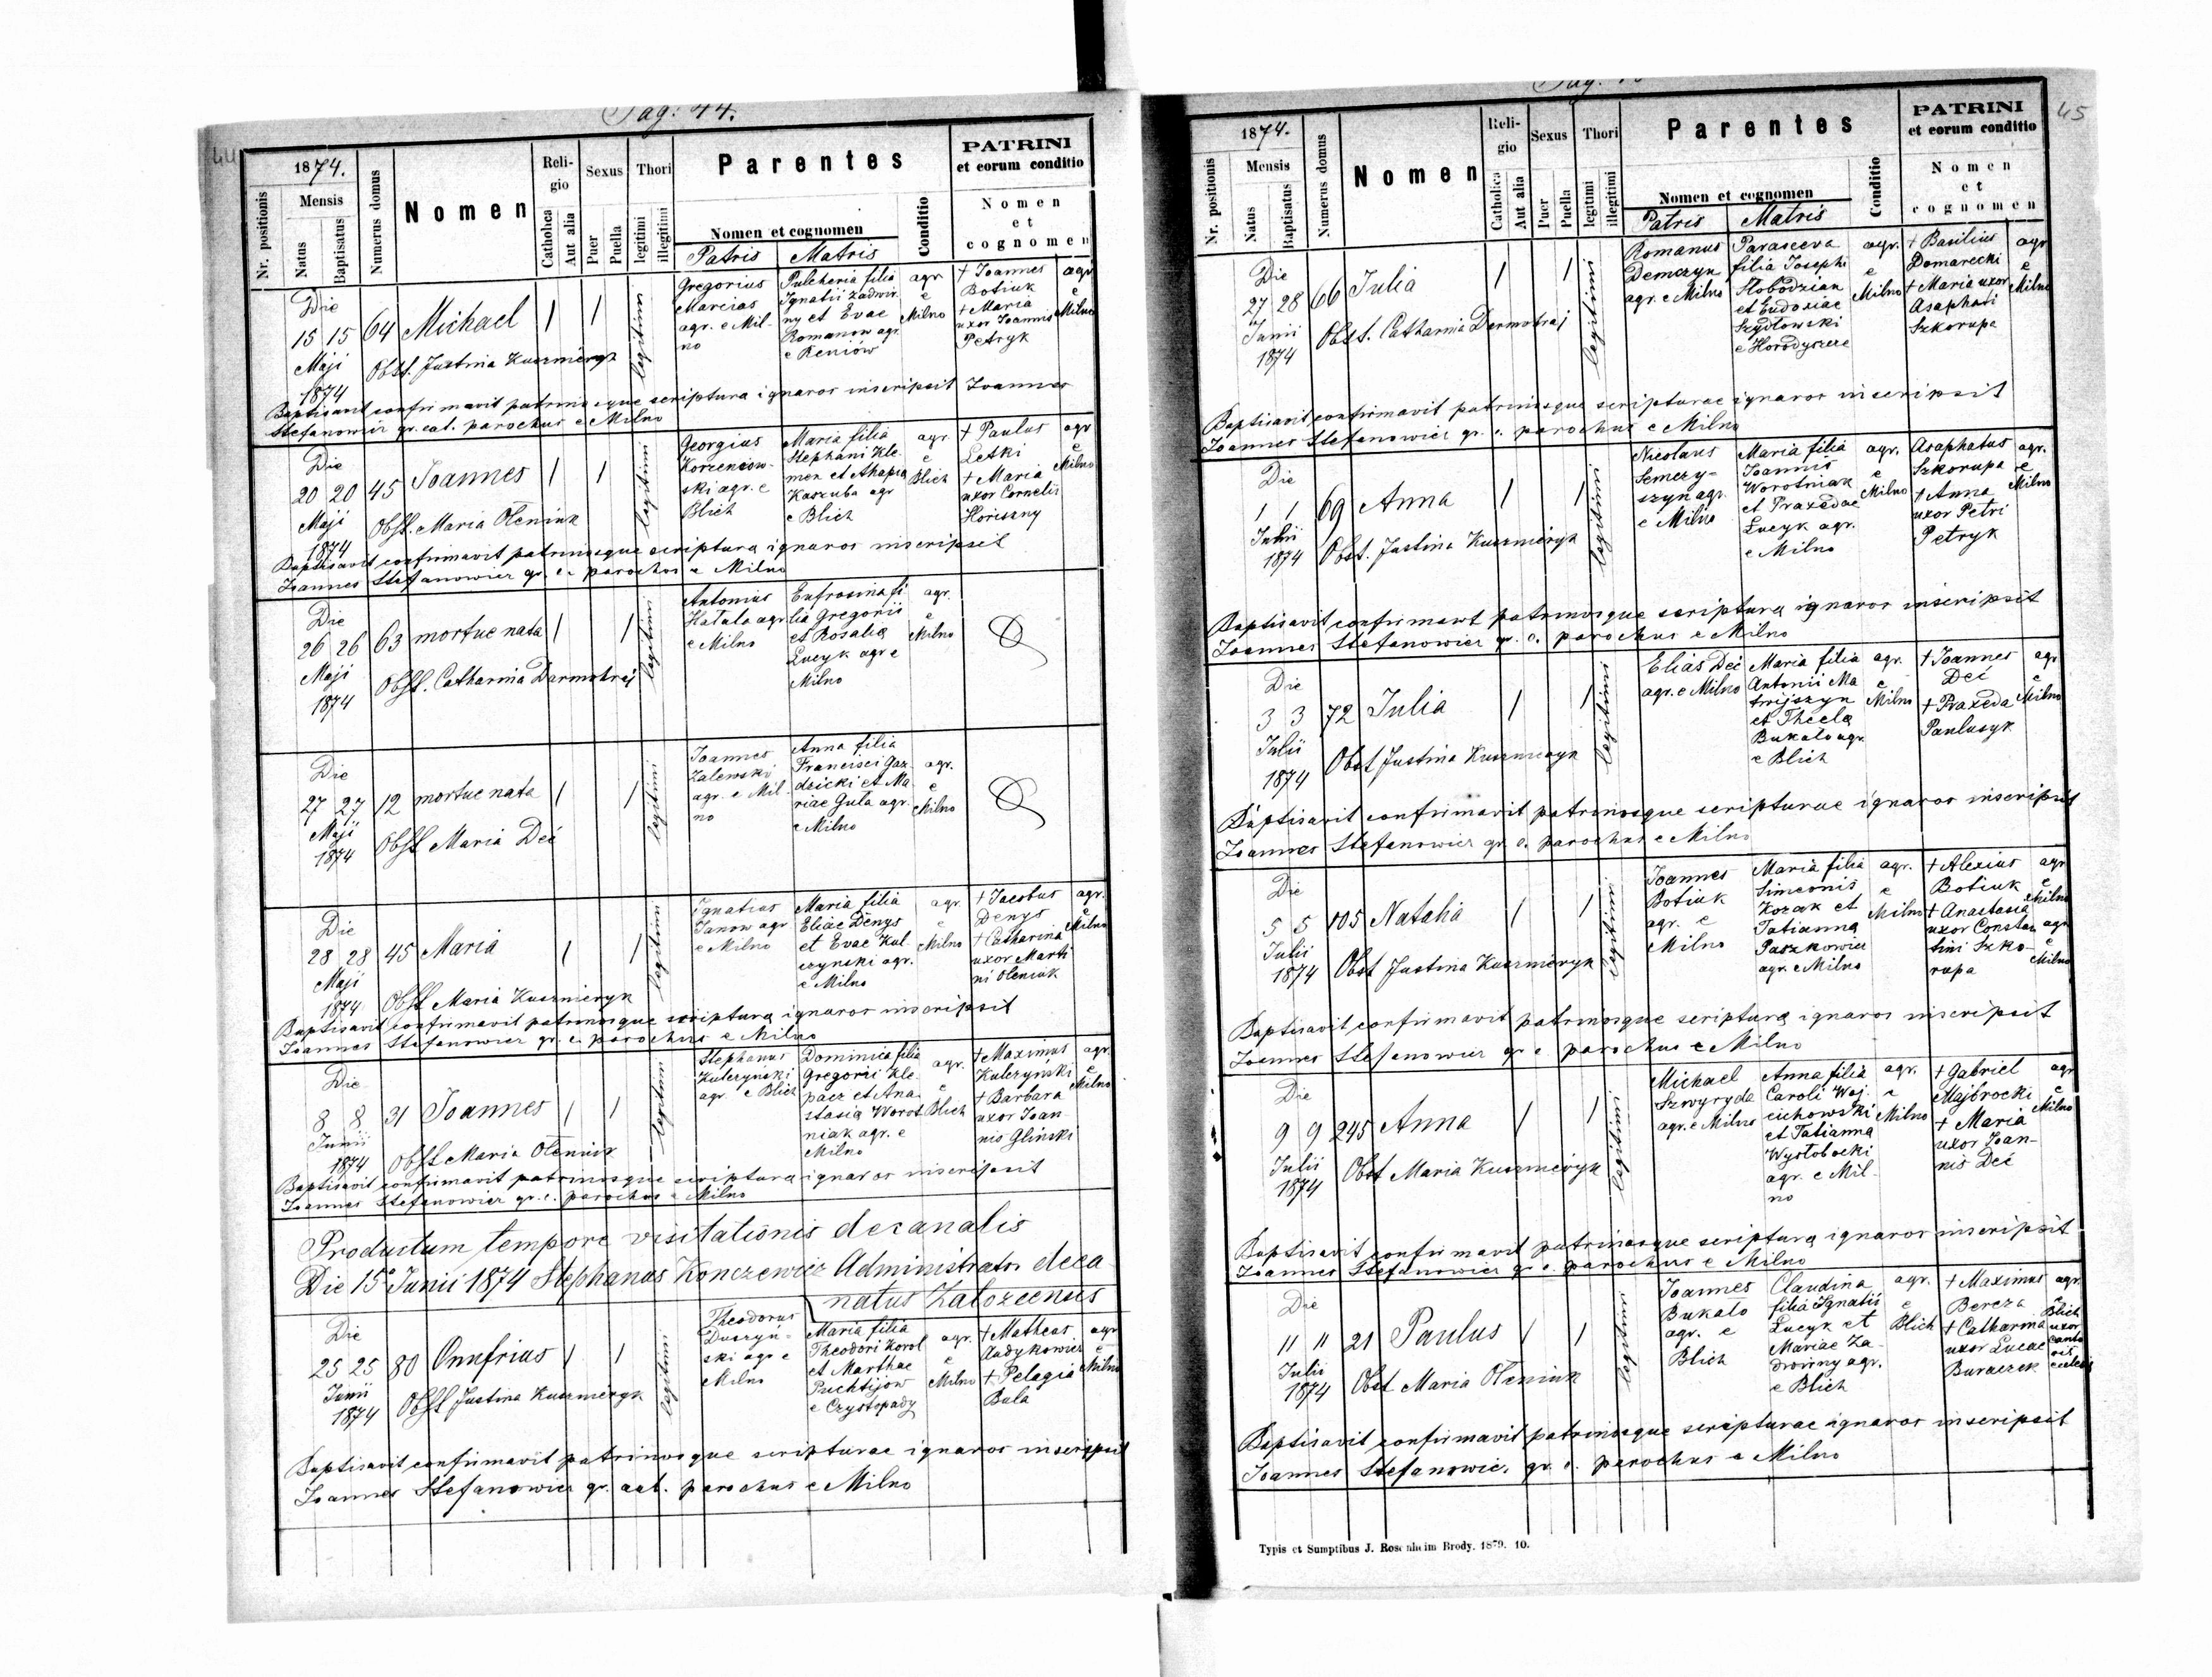 Pag: 44.
44
1874.
Nr. positionis
Mensis
Natus
Baptisatus
Numerus domus
Nomen
Religio
Catholica
Aut alia
Sexus
Puer
Puella
Thori
legitimi
illegitimi
Parentes
Nomen et cognomen
Patris
Matris
Conditio
PATRINI
et eorum conditio
Nomen
et
cognomen
Die
15 15
Maji
1874
64
Michael
Obst. Justina Kuszmeryk
legitimi
Gregorius
Marcias
agr. e Mil-
no
Pulcheria filia
Ignatii Zadwir.
ny et Evae
Romanow agr
e Reniów
agr
e
Milno
+ Joannes
Botiuk
+ Maria
uxor Joannis
Petryk
agr
e
Milno
Baptisavit confirmavit patrinosque scriptura ignaros inscripsit Joannes
Stefanowicz gr. cat. parochus e Milno
Die
20 20
Maji
1874
45
Joannes
Obst. Maria Oleniuk
legitimi
Georgius
Korzeniow-
ski agr. e
Blich
Maria filia
Stephani Kle-
men et Ahapia
Kaszuba agr
e Blich
agr.
e
Blich
+ Paulus
Letki
+ Maria
uxor Cornelii
Horiszny
agr
e
Milno
Baptisavit confirmavit patrinosque scriptura ignaros inscripsit
Joannes Stefanowicz gr. c. parochus e Milno
Die
26 26
Maji
1874
63
mortue nata
Obst. Catharina Darmohraj
legitimi
Antonius
Hatala agr
e Milno
Eufrosina fi
lia Gregorii
et Rosalia
Lucyk agr e
Milno
agr.
e
Milno
Die
27 27
Maji
1874
12
mortue nata
Obst Maria Deć
legitimi
Joannes
Zalewski
agr. e Mil-
no
Anna filia
Francisci Gaz
dzicki et Ma
riae Guta agr.
e Milno
agr.
e
Milno
Die
28 28
Maji
1874
45
Maria
Obst Maria Kuszmeryk
legitimi
Ignatius
Janow agr
e Milno
Maria filia
Eliae Denys
et Evae Kul
czynski agr.
e Milno
agr.
e
Milno
+ Jacobus
Denys
+ Catharina
uxor Marti
ni Oleniuk
agr.
e
Milno
Baptisavit confirmavit patrinosque scriptura ignaros inscripsit
Joannes Stefanowicz gr. c. parochus e Milno
Die
8 8
Junii
1874
31
Joannes
Obst Maria Oleniuk
legitimi
Stephanus
Kulczynski
agr. e Blich
Dominica filia
Gregorii Kle-
pacz et Ana
stasia Worot
niak agr. e
Milno
agr.
e
Blich
+ Maximus
Kulczynski
+ Barbara
uxor Joan-
nis Gliński
agr.
e
Milno
Baptisavit confirmavit patrinosque scriptura ignaros inscripsit
Joannes Stefanowicz gr. c. parochus e Milno
Productum tempore visitationis decanalis
Die 15 Junii 1874 Stephanus Konczewicz Administrator deca
natus Zalozcensis
Die
25 25
Junii
1874
80
Onufrius
Obst Justina Kuszmeryk
legitimi
Theodorus
Duszyn-
ski agr e
Milno
Maria filia
Theodori Korol
et Marthae
Puchtijow
e Czystopady
agr.
e
Milno
+ Matheas
Audykowicz
+ Pelagia
Bula
agr
e
Milno
Baptisavit confirmavit patrinosque scripturae ignaros inscripsit
Joannes Stefanowicz gr. cat. parochus e Milno
45
1874.
Nr. positionis
Mensis
Natus
Baptisatus
Numerus domus
Nomen
Religio
Catholica
Aut alia
Sexus
Puer
Puella
Thori
legitimi
illegitimi
Parentes
Nomen et cognomen
Patris
Matris
Conditio
PATRINI
et eorum conditio
Nomen
et
cognomen
Die
27 28
Junii
1874
66
Julia
Obst. Catharina Darmohraj
legitimi
Romanus
Demczyk
agr. e Milno
Parasceva
filia Josephi
Slobodzian
et Eudoxiae
Szydłowski
e Horodyszcze
agr.
e
Milno
+ Basilius
Domarecki
+ Maria uxor
Asaphati
Szkorupa
agr
e
Milno
Baptisavit confirmavit patrinosque scripturae ignaros inscripsit
Joannes Stefanowicz gr. c. parochus e Milno
Die
1 1
Julii
1874
69
Anna
Obst. Justina Kuszmeryk
legitimi
Nicolaus
Semczy-
szyn agr.
e Milno
Maria filia
Joannis
Worotniak
et Praxedae
Lucyk agr.
e Milno
agr.
e
Milno
Asaphatus
Szkorupa
+ Anna
uxor Petri
Petryk
agr.
e
Milno
Baptisavit confirmavit patrinosque scriptura ignaros inscripsit
Joannes Stefanowicz gr. c. parochus e Milno
Die
3 3
Julii
1874
72
Julia
Obst Justina Kuszmeryk
legitimi
Elias Deć
agr. e Milno
Maria filia
Antonii Ma
twijszyn
et Thecla
Bukalo agr.
e Blich
agr.
e
Milno
+ Joannes
Deć
+ Praxeda
Paulusyk
agr
e
Milno
Baptisavit confirmavit patrinosque scripturae ignaros inscripsit
Joannes Stefanowicz gr. c. parochus e Milno
Die
5 5
Julii
1874
105
Natalia
Obst Justina Kuszmeryk
legitimi
Joannes
Botiuk
agr. e
Milno
Maria filia
Simeonis
Kozak et
Tatianna
Paszkowicz
agr. e Milno
agr.
e
Milno
+ Alexius
Botiuk
+ Anastasia
uxor Constan
tini Szko-
rupa
agr
e
Milno
agr
e
Milno
Baptisavit confirmavit patrinosque scriptura ignaros inscripsit
Joannes Stefanowicz gr c. parochus e Milno
Die
9 9
Julii
1874
245
Anna
Obst Maria Kuszmeryk
legitimi
Michael
Szwyryda
agr. e Milno
Anna filia
Caroli Woj-
cichowski
et Tatianna
Wysłobocki
agr. e Mil-
no
agr.
e
Milno
+ Gabriel
Majbrocki
+ Maria
uxor Joan-
nis Deć
agr
e
Milno
Baptisavit confirmavit patrinosque scriptura ignaros inscripsit
Joannes Stefanowicz gr. c. parochus e Milno
Die
11 11
Julii
1874
21
Paulus
Obst Maria Oleniuk
legitimi
Joannes
Bukalo
agr. e
Blich
Claudina
filia Ignatii
Lucyk et
Mariae Za-
dwirny agr.
e Blich
agr.
e
Blich
+ Maximus
Bereza
+ Catharina
uxor Lucae
Buraczek
agr.
e
Blich
uxor
canto
ris
eccles
Baptisavit confirmavit patrinosque scripturae ignaros inscripsit
Joannes Stefanowicz gr. c. parochus e Milno
Typis et Sumptibus J. Rosenheim Brody. 1879. 10.